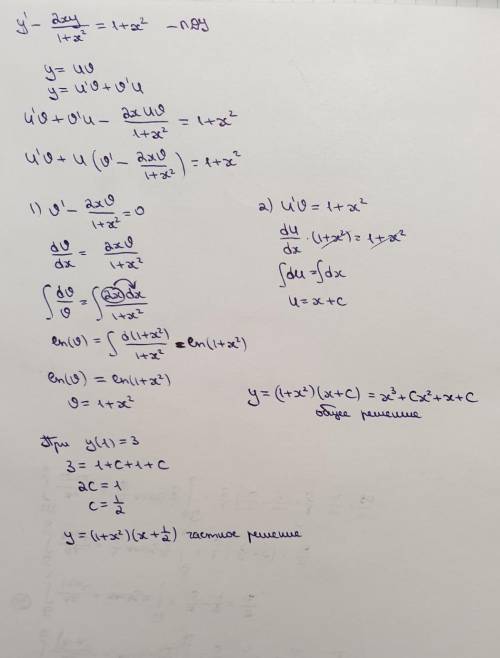 y' - 2xy/(1+x²) = 1+x² - ЛДУ
y = uϑ
y = u'ϑ + ϑ'u
u'ϑ + ϑ'u - 2xuϑ/(1+x²) = 1+x²
u'ϑ + u(ϑ' - 2xϑ/(1+x²)) = 1+x²
1) ϑ' - 2xϑ/(1+x²) = 0
dϑ/dx = 2xϑ/(1+x²)
∫ dϑ/ϑ = ∫ 2x dx/(1+x²)
ln(ϑ) = ∫ d(1+x²)/(1+x²) = ln(1+x²)
ln(ϑ) = ln(1+x²)
ϑ = 1+x²
2) u'ϑ = 1+x²
du/dx · (1+x²) = 1+x²
∫du = ∫dx
u = x + c
y = (1+x²)(x+C) = x³ + Cx² + x + C
общее решение
При y(1) = 3
3 = 1 + c + 1 + c
2c = 1
c = 1/2
y = (1+x²)(x + 1/2) частное решение